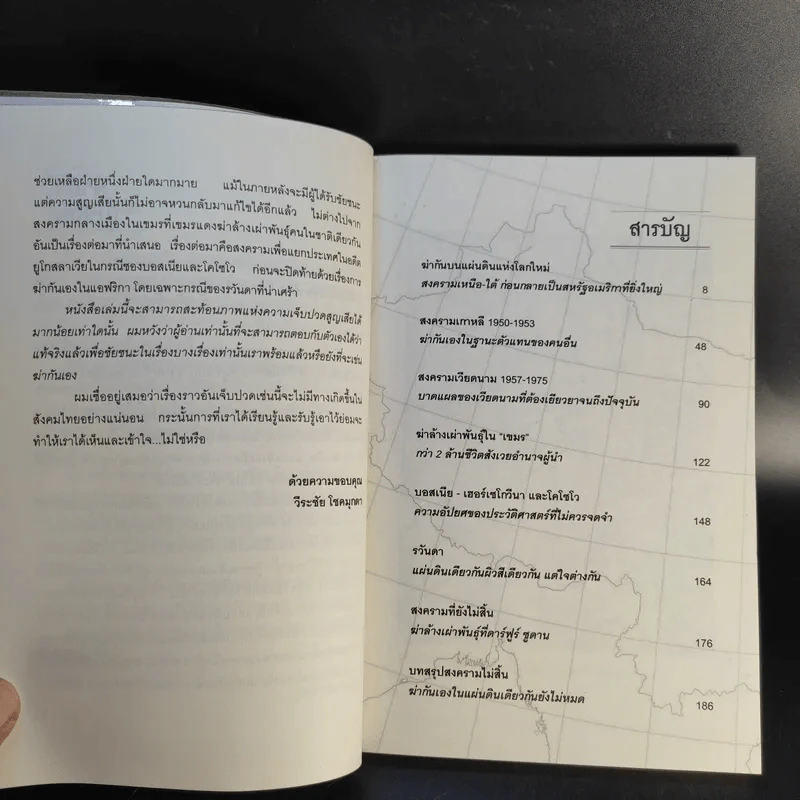 ช่วยเหลือฝ่ายหนึ่งฝ่ายใดมากมาย แม้ในภายหลังจะมีผู้ได้รับชัยชนะ
แต่ความสูญเสียนั้นก็ไม่อาจหวนกลับมาแก้ไขได้อีกแล้ว ไม่ต่างไปจาก
สงครามกลางเมืองในเขมรที่เขมรแดงฆ่าล้างเผ่าพันธุ์คนในชาติเดียวกัน
อันเป็นเรื่องต่อมาที่นำเสนอ เรื่องต่อมาคือสงครามเพื่อแยกประเทศในอดีต
ยูโกสลาเวียในกรณีของบอสเนียและโคโซโว ก่อนจะปิดท้ายด้วยเรื่องการ
ฆ่ากันเองในแอฟริกา โดยเฉพาะกรณีของรวันดาที่น่าเศร้า
หนังสือเล่มนี้จะสามารถสะท้อนภาพแห่งความเจ็บปวดสูญเสียได้
มากน้อยเท่าใดนั้น ผมหวังว่าผู้อ่านเท่านั้นที่จะสามารถตอบกับตัวเองได้ว่า
แท้จริงแล้วเพื่อชัยชนะในเรื่องบางเรื่องเท่านั้นเราพร้อมแล้วหรือยังที่จะเข่น
ฆ่ากันเอง
ผมเชื่ออยู่เสมอว่าเรื่องราวอันเจ็บปวดเช่นนี้จะไม่มีทางเกิดขึ้นใน
สังคมไทยอย่างแน่นอน กระนั้นการที่เราได้เรียนรู้และรับรู้เอาไว้ย่อมจะ
ทำให้เราได้เห็นและเข้าใจ...ไม่ใช่หรือ
ด้วยความขอบคุณ
วีระชัย โชคมุกดา
สารบัญ
ฆ่ากันบนแผ่นดินแห่งโลกใหม่
สงครามเหนือ-ใต้ ก่อนกลายเป็นสหรัฐอเมริกาที่ยิ่งใหญ่ 8
สงครามเกาหลี 1950-1953
ฆ่ากันเองในฐานะตัวแทนของคนอื่น 48
สงครามเวียดนาม 1957-1975
บาดแผลของเวียดนามที่ต้องเยียวยาจนถึงปัจจุบัน 90
ฆ่าล้างเผ่าพันธุ์ใน "เขมร"
กว่า 2 ล้านชีวิตสังเวยอำนาจผู้นำ 122
บอสเนีย - เฮอร์เซโกวีนา และโคโซโว
ความอัปยศของประวัติศาสตร์ที่ไม่ควรจดจำ 148
รวันดา
แผ่นดินเดียวกันผิวสีเดียวกัน แต่ใจต่างกัน 164
สงครามที่ยังไม่สิ้น
ฆ่าล้างเผ่าพันธุ์ที่ดาร์ฟูร์ ซูดาน 176
บทสรุปสงครามไม่สิ้น
ฆ่ากันเองในแผ่นดินเดียวกันยังไม่หมด 186